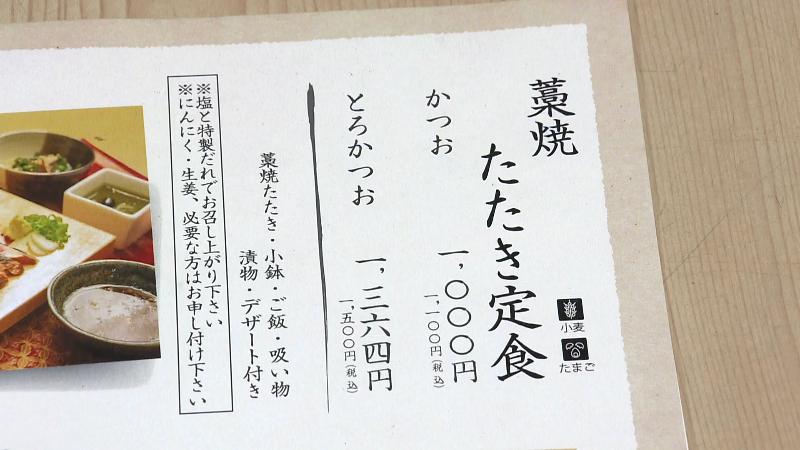 藁焼
たたき定食
小麦
たまご
かつお
一,〇〇〇円
一,一〇〇円(税込)
とろかつお
一,三六四円
一,五〇〇円(税込)
藁焼たたき・小鉢・ご飯・吸い物
漬物・デザート付き
※塩と特製だれでお召し上がり下さい
※にんにく・生姜、必要な方はお申し付け下さい